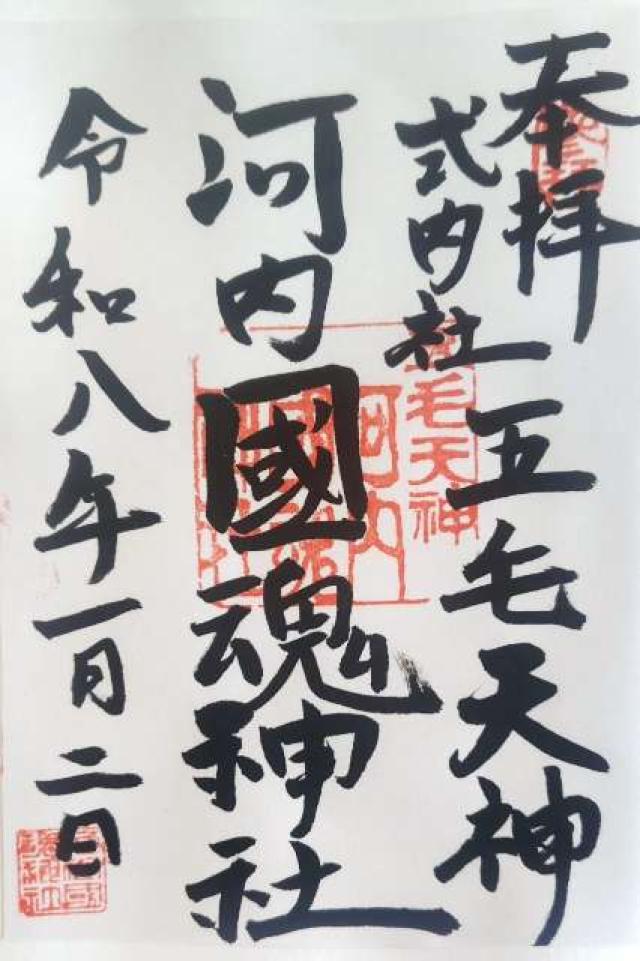 奉拝
式内社
五毛天神
河内國魂神社
令和八年一月二日
五毛天神
河内國魂神社